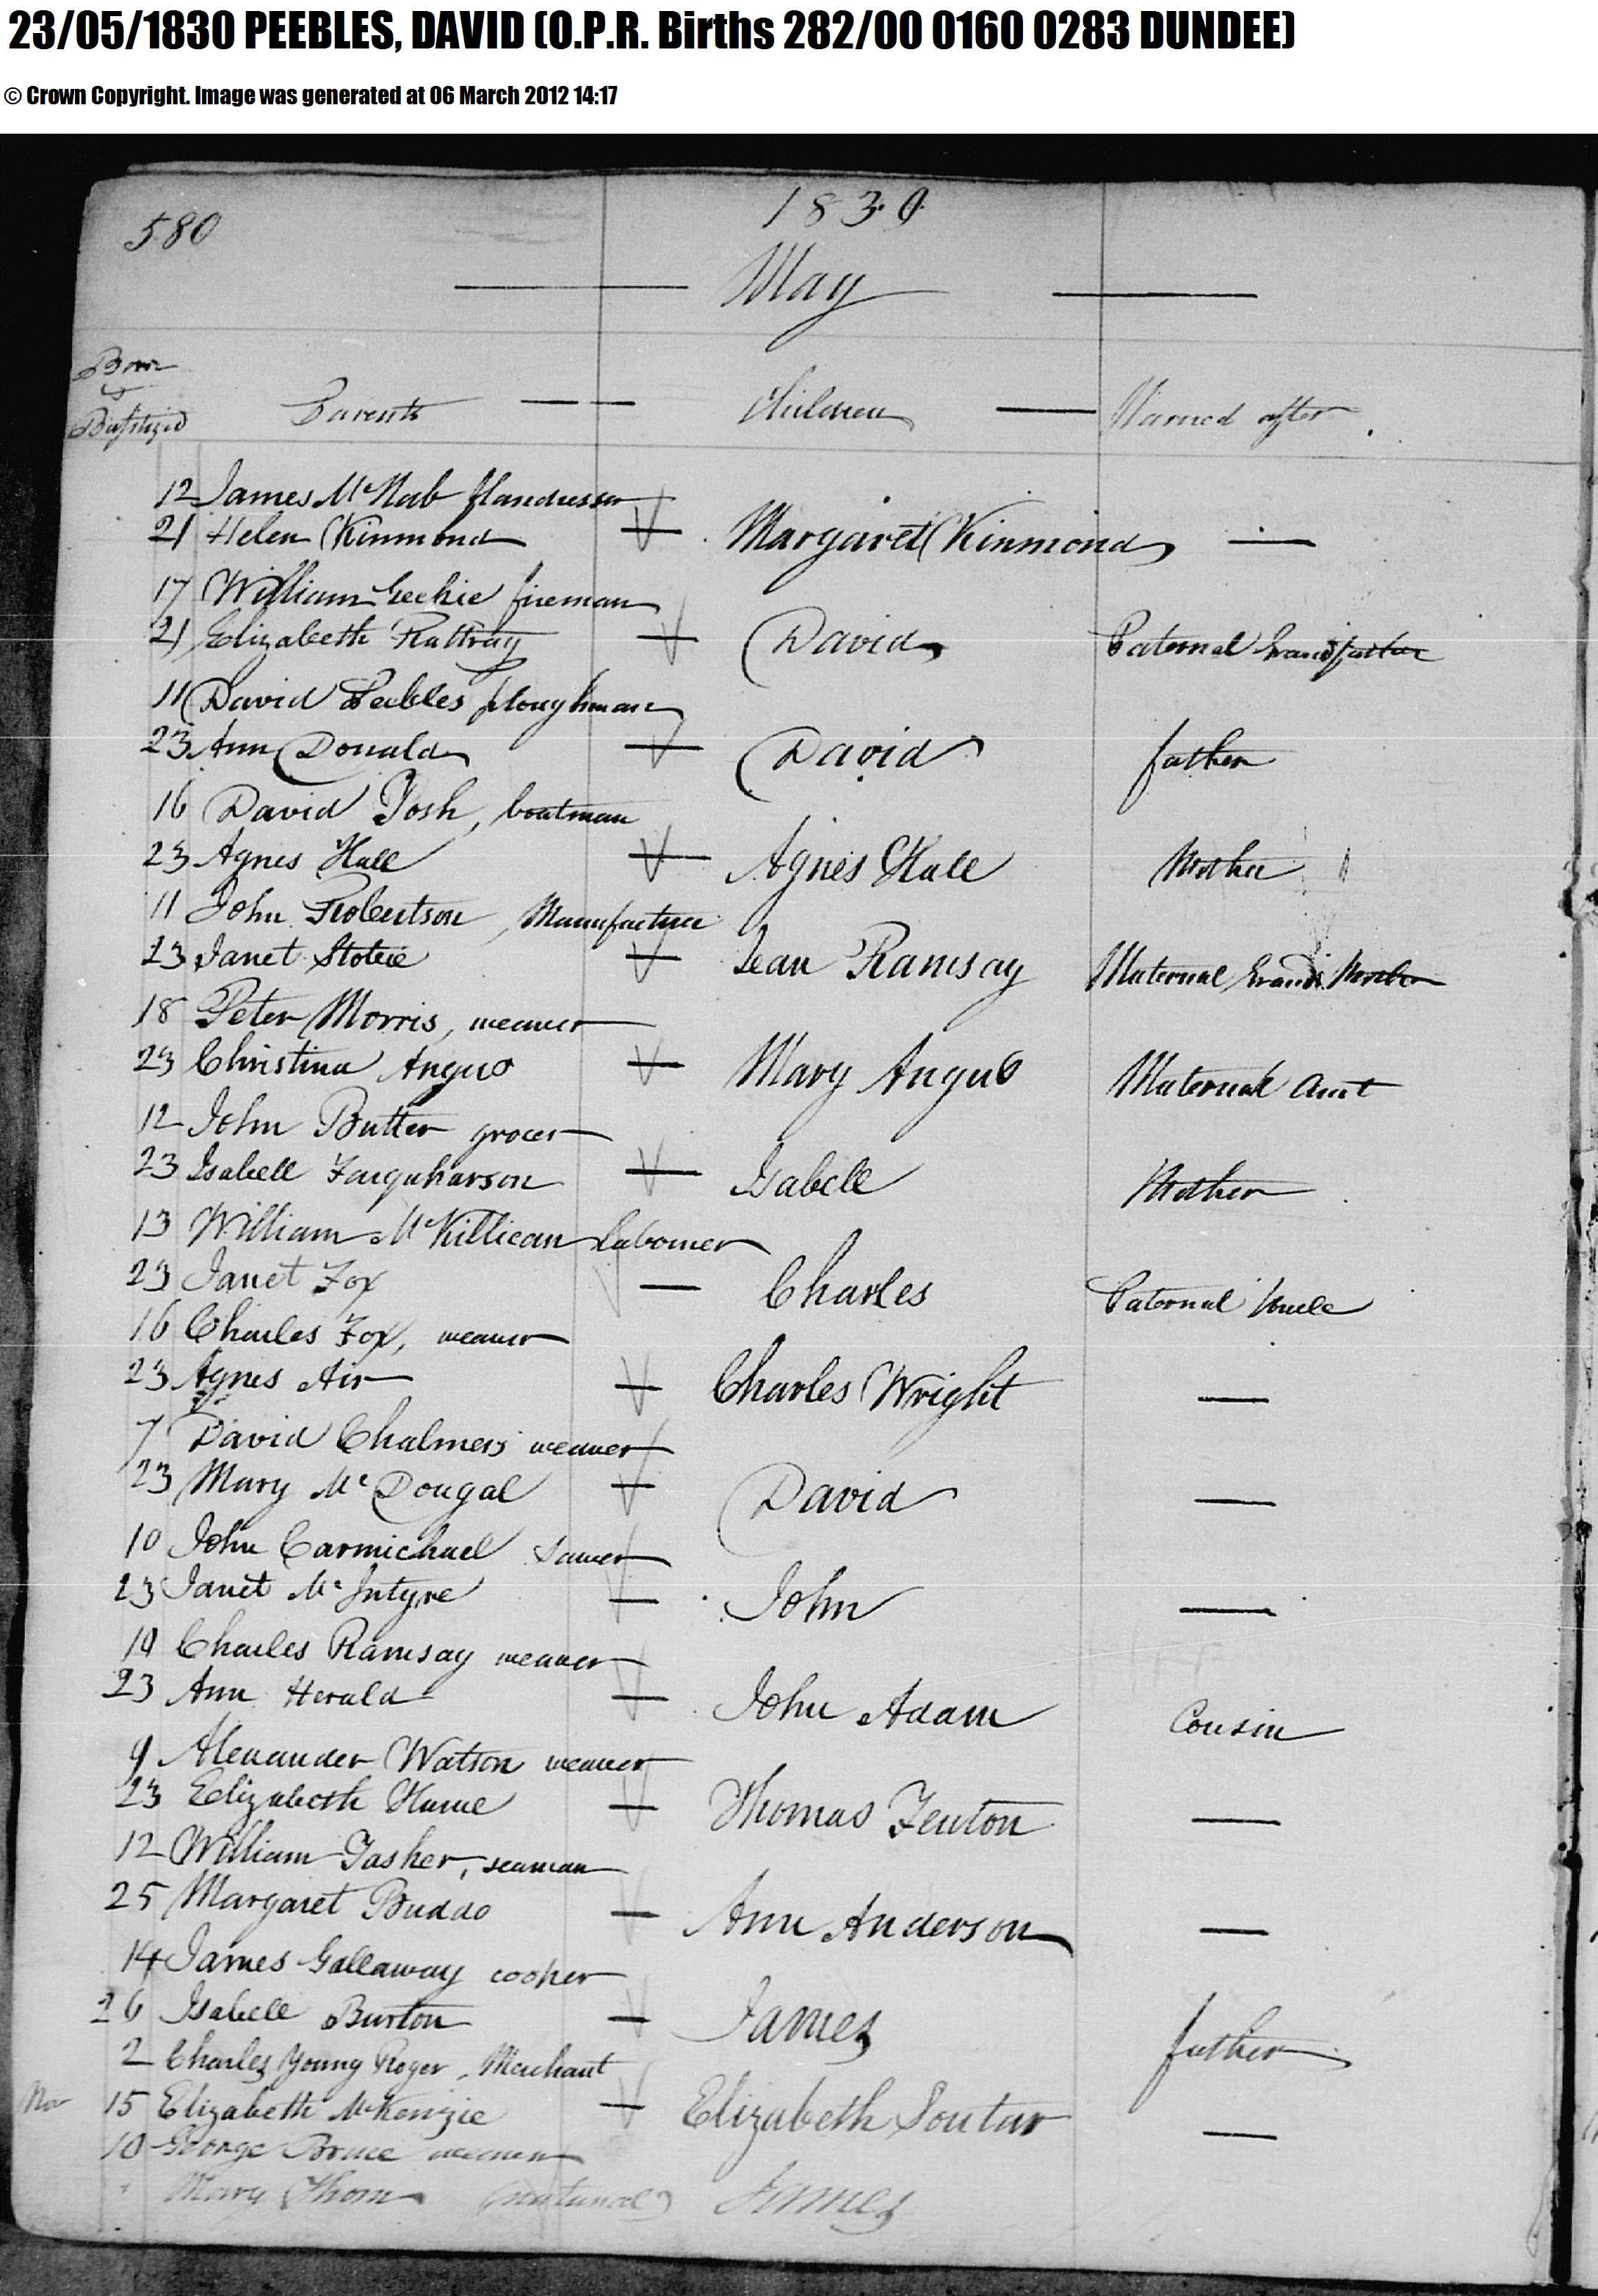 23/05/1830 PEEBLES, DAVID (O.P.R. Births 282/00 0160 0283 DUNDEE)
© Crown Copyright. Image was generated at 06 March 2012 14:17
580
1830
May
Born
&
Baptized Parents Children Named after
12 James McNab flaxdresser
21 Helen Kinmond Margaret Kinmond —
17 William Geekie fireman
21 Elizabeth Rattray David Paternal Grandfather
11 David Peebles ploughman
23 Ann Donald David father
16 David Tosh, boatman
23 Agnes Hall Agnes Hall Mother
11 John Robertson, Manufacturer
23 Janet Jean Ramsay Maternal Grand Mother
18 Peter Morris, weaver
23 Christina Angus Mary Angus Maternal Aunt
12 John Butter grocer
23 Isabell Farquharson Isabell Mother
13 William McKillican labourer
23 Janet Fox Charles Paternal Uncle
16 Charles Fox, weaver
23 Agnes Air Charles Wright —
7 David Chalmers weaver
23 Mary McDougal David —
10 John Carmichael Sawer
23 Janet McIntyre John —
19 Charles Ramsay weaver
23 Ann Herald John Adam Cousin
9 Alexander Watson weaver
23 Elizabeth Hume Thomas Fenton —
12 William Tasker, seaman
25 Margaret Buddo Ann Anderson —
14 James Gallaway cooper
26 Isabell Burton James father
2 Charles Young Roger, Merchant
15 Elizabeth McKenzie Elizabeth Soutar —
10 George Bruce weaver
Mary Thom (natural) James